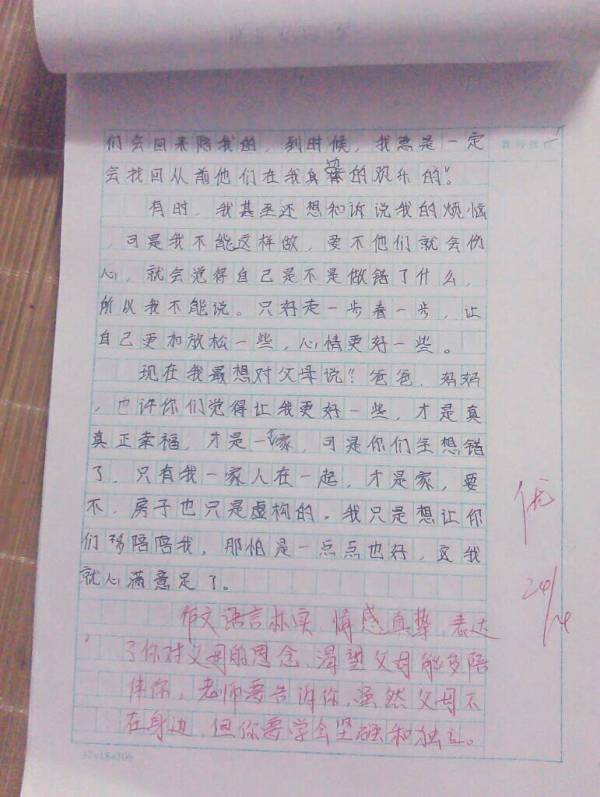 们会回来陪我的，到时候，我总是一定
会找回从前他们在我身边的欢乐的"。
有时，我甚至还想和诉说我的烦恼
，可是我不能这样做，要不他们就会伤
心，就会觉得自己是不是做错了什么，
所以我不能说。只好走一步看一步，让
自己更加放松一些，心情更好一些。
现在我最想对父母说："爸爸，妈妈
，也许你们觉得让我更好一些，才是真
真正幸福，才是一家，可是你们全想错
了，只有我一家人在一起，才是家，要
不，房子也只是虚构的。我只是想让你
们多陪陪我，那怕是一点点也好，这我
就心满意足了。
优
24/14
作文语言朴实，情感真挚，表达
了你对父母的思念，渴望父母能多陪
伴你，老师要告诉你，虽然父母不
在身边，但你要学会坚强和独立。